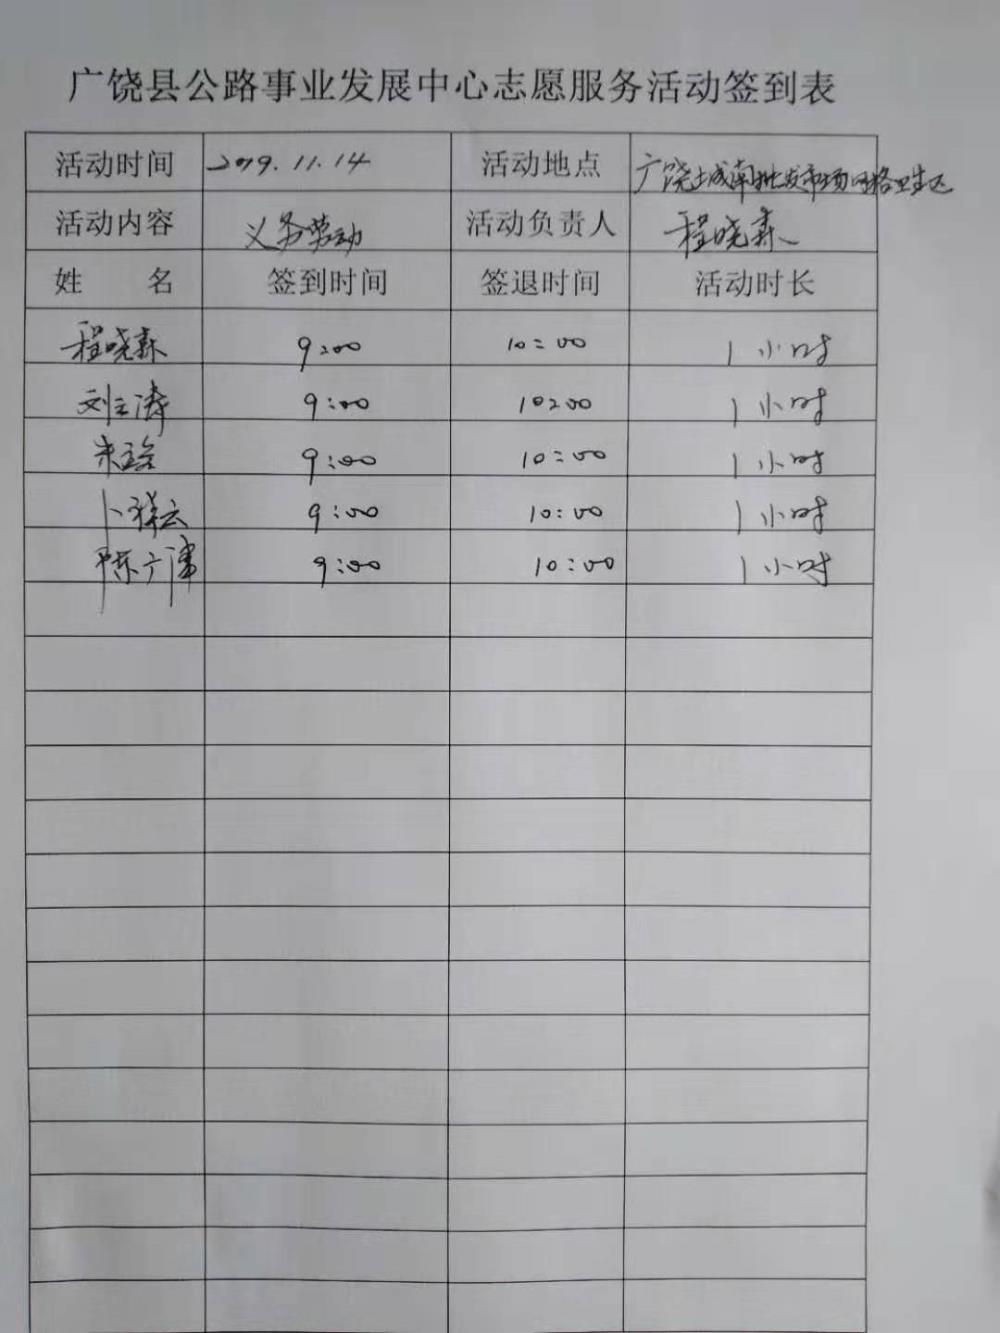 广饶县公路事业发展中心志愿服务活动签到表
活动时间 2019.11.14 活动地点 广饶城南批发市场网格卫生区
活动内容 义务劳动 活动负责人 程晓霖
姓 名 签到时间 签退时间 活动时长
程晓霖 9:00 10:00 1小时
刘立涛 9:00 10:00 1小时
9:00 10:00 1小时
卜祥云 9:00 10:00 1小时
陈广 9:00 10:00 1小时